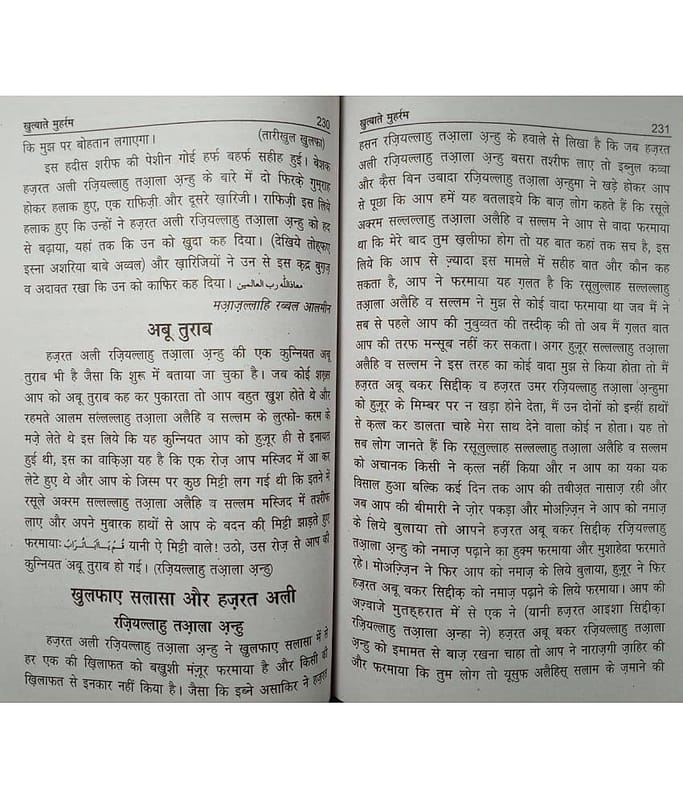 खुत्बाते मुहर्रम 230
कि मुझ पर बोहतान लगाएगा। (तारीखुल खुलफ़ा)
इस हदीस शरीफ की पेशीन गोई हर्फ बहर्फ सहीह हुई। बेशक
हज़रत अली रज़ियल्लाहु तआ़ला अ़न्हु के बारे में दो फिरक़े गुमराह
होकर हलाक हुए, एक राफ़िज़ी और दूसरे ख़ारिजी। राफिज़ी इस लिये
हलाक हुए कि उन्होंने हज़रत अली रज़ियल्लाहु तआ़ला अ़न्हु को हद
से बढ़ाया, यहां तक कि उन को खुदा कह दिया। (देखिये तोह्फ़ए
इस्ना अशरिया बाबे अव्वल) और ख़ारिजियों ने उन से इस क़द्र बुग़्ज़
व अदावत रखा कि उन को काफिर कह दिया। معاذاللہ رب العالمین
मआ़ज़ल्लाहि रब्बल आलमीन
अबू तुराब
हज़रत अली रज़ियल्लाहु तआ़ला अ़न्हु की एक कुन्नियत अबू
तुराब भी है जैसा कि शुरू में बताया जा चुका है। जब कोई शख़्स
आप को अबू तुराब कह कर पुकारता तो आप बहुत खुश होते थे और
रहमते आलम सल्लल्लाहु तआ़ला अलैहि व सल्लम के लुत्फो- करम के
मज़े लेते थे इस लिये कि यह कुन्नियत आप को हुज़ूर ही से इनायत
हुई थी, इस का वाक़िआ़ यह है कि एक रोज़ आप मस्जिद में आ कर
लेटे हुए थे और आप के जिस्म पर कुछ मिट्टी लग गई थी कि इतने में
रसूले अकरम सल्लल्लाहु तआ़ला अलैहि व सल्लम मस्जिद में तश्रीफ़
लाए और अपने मुबारक हाथों से आप के बदन की मिट्टी झाड़ते हुए
फरमायाः قُمْ يَا اَبَا تُرَابُ यानी ऐ मिट्टी वाले! उठो, उस रोज़ से आप की
कुन्नियत अबू तुराब हो गई। (रज़ियल्लाहु तआ़ला अ़न्हु)
खुलफाए सलासा और हज़रत अली
रज़ियल्लाहु तआ़ला अ़न्हु
हज़रत अली रज़ियल्लाहु तआ़ला अ़न्हु ने खुलफाए सलासा में से
हर एक की ख़िलाफत को बखुशी मंज़ूर फरमाया है और किसी की
ख़िलाफत से इनकार नहीं किया है। जैसा कि इब्ने असाकिर ने हज़रत
खुत्बाते मुहर्रम 231
हसन रज़ियल्लाहु तआ़ला अ़न्हु के हवाले से लिखा है कि जब हज़रत
अली रज़ियल्लाहु तआ़ला अ़न्हु बसरा तश्रीफ लाए तो इब्नुल कव्वा
और क़ैस बिन उबादा रज़ियल्लाहु तआ़ला अ़न्हुमा ने खड़े होकर आप
से पूछा कि आप हमें यह बतलाइये कि बाज़ लोग कहते हैं कि रसूले
अकरम सल्लल्लाहु तआ़ला अलैहि व सल्लम ने आप से वादा फरमाया
था कि मेरे बाद तुम ख़लीफ़ा होग तो यह बात कहां तक सच है, इस
लिये कि आप से ज़्यादा इस मामले में सहीह बात और कौन कह
सकता है, आप ने फरमाया यह ग़लत है कि रसूलुल्लाह सल्लल्लाहु
तआ़ला अलैहि व सल्लम ने मुझ से कोई वादा फरमाया था जब मैं ने
सब से पहले आप की नुबुव्वत की तस्दीक़ की तो अब मैं ग़लत बात
आप की तरफ मन्सूब नहीं कर सकता। अगर हुज़ूर सल्लल्लाहु तआ़ला
अलैहि व सल्लम ने इस तरह का कोई वादा मुझ से किया होता तो मैं
हज़रत अबू बकर सिद्दीक़ व हज़रत उमर रज़ियल्लाहु तआ़ला अ़न्हुमा
को हुज़ूर के मिम्बर पर न खड़ा होने देता, मैं उन दोनों को इन्हीं हाथों
से क़त्ल कर डालता चाहे मेरा साथ देने वाला कोई न होता। यह तो
सब लोग जानते हैं कि रसूलुल्लाह सल्लल्लाहु तआ़ला अलैहि व सल्लम
को अचानक किसी ने क़त्ल नहीं किया और न आप का यका यक
विसाल हुआ बल्कि कई दिन तक आप की तबीअ़त नासाज़ रही और
जब आप की बीमारी ने ज़ोर पकड़ा और मोअज़्ज़िन ने आप को नमाज़
के लिये बुलाया तो आपने हज़रत अबू बकर सिद्दीक़ रज़ियल्लाहु
तआ़ला अ़न्हु को नमाज़ पढ़ाने का हुक्म फरमाया और मुशाहेदा फरमाते
रहे। मोअज़्ज़िन ने फिर आप को नमाज़ के लिये बुलाया, हुज़ूर ने फिर
हज़रत अबू बकर सिद्दीक़ को नमाज़ पढ़ाने के लिये फरमाया। आप की
अज़्वाजे मुतह्हरात में से एक ने (यानी हज़रत आइशा सिद्दीक़ा
रज़ियल्लाहु तआ़ला अ़न्हा ने) हज़रत अबू बकर रज़ियल्लाहु तआ़ला
अ़न्हु को इमामत से बाज़ रखना चाहा तो आप ने नाराज़गी ज़ाहिर की
और फरमाया कि तुम लोग तो यूसुफ अलैहिस् सलाम के ज़माने की